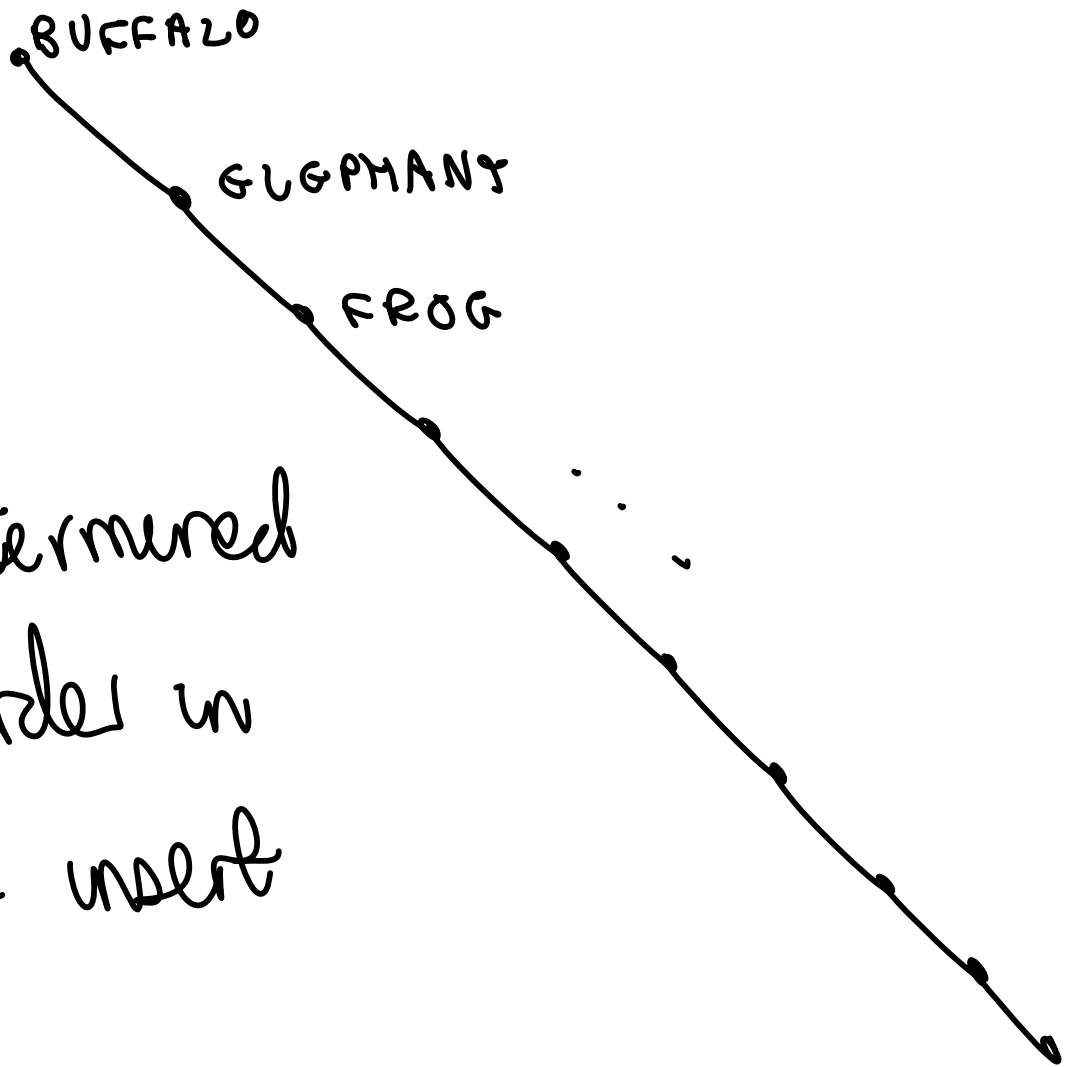 BUFFALO
ELEPHANT
FROG
ermined
der in
insert